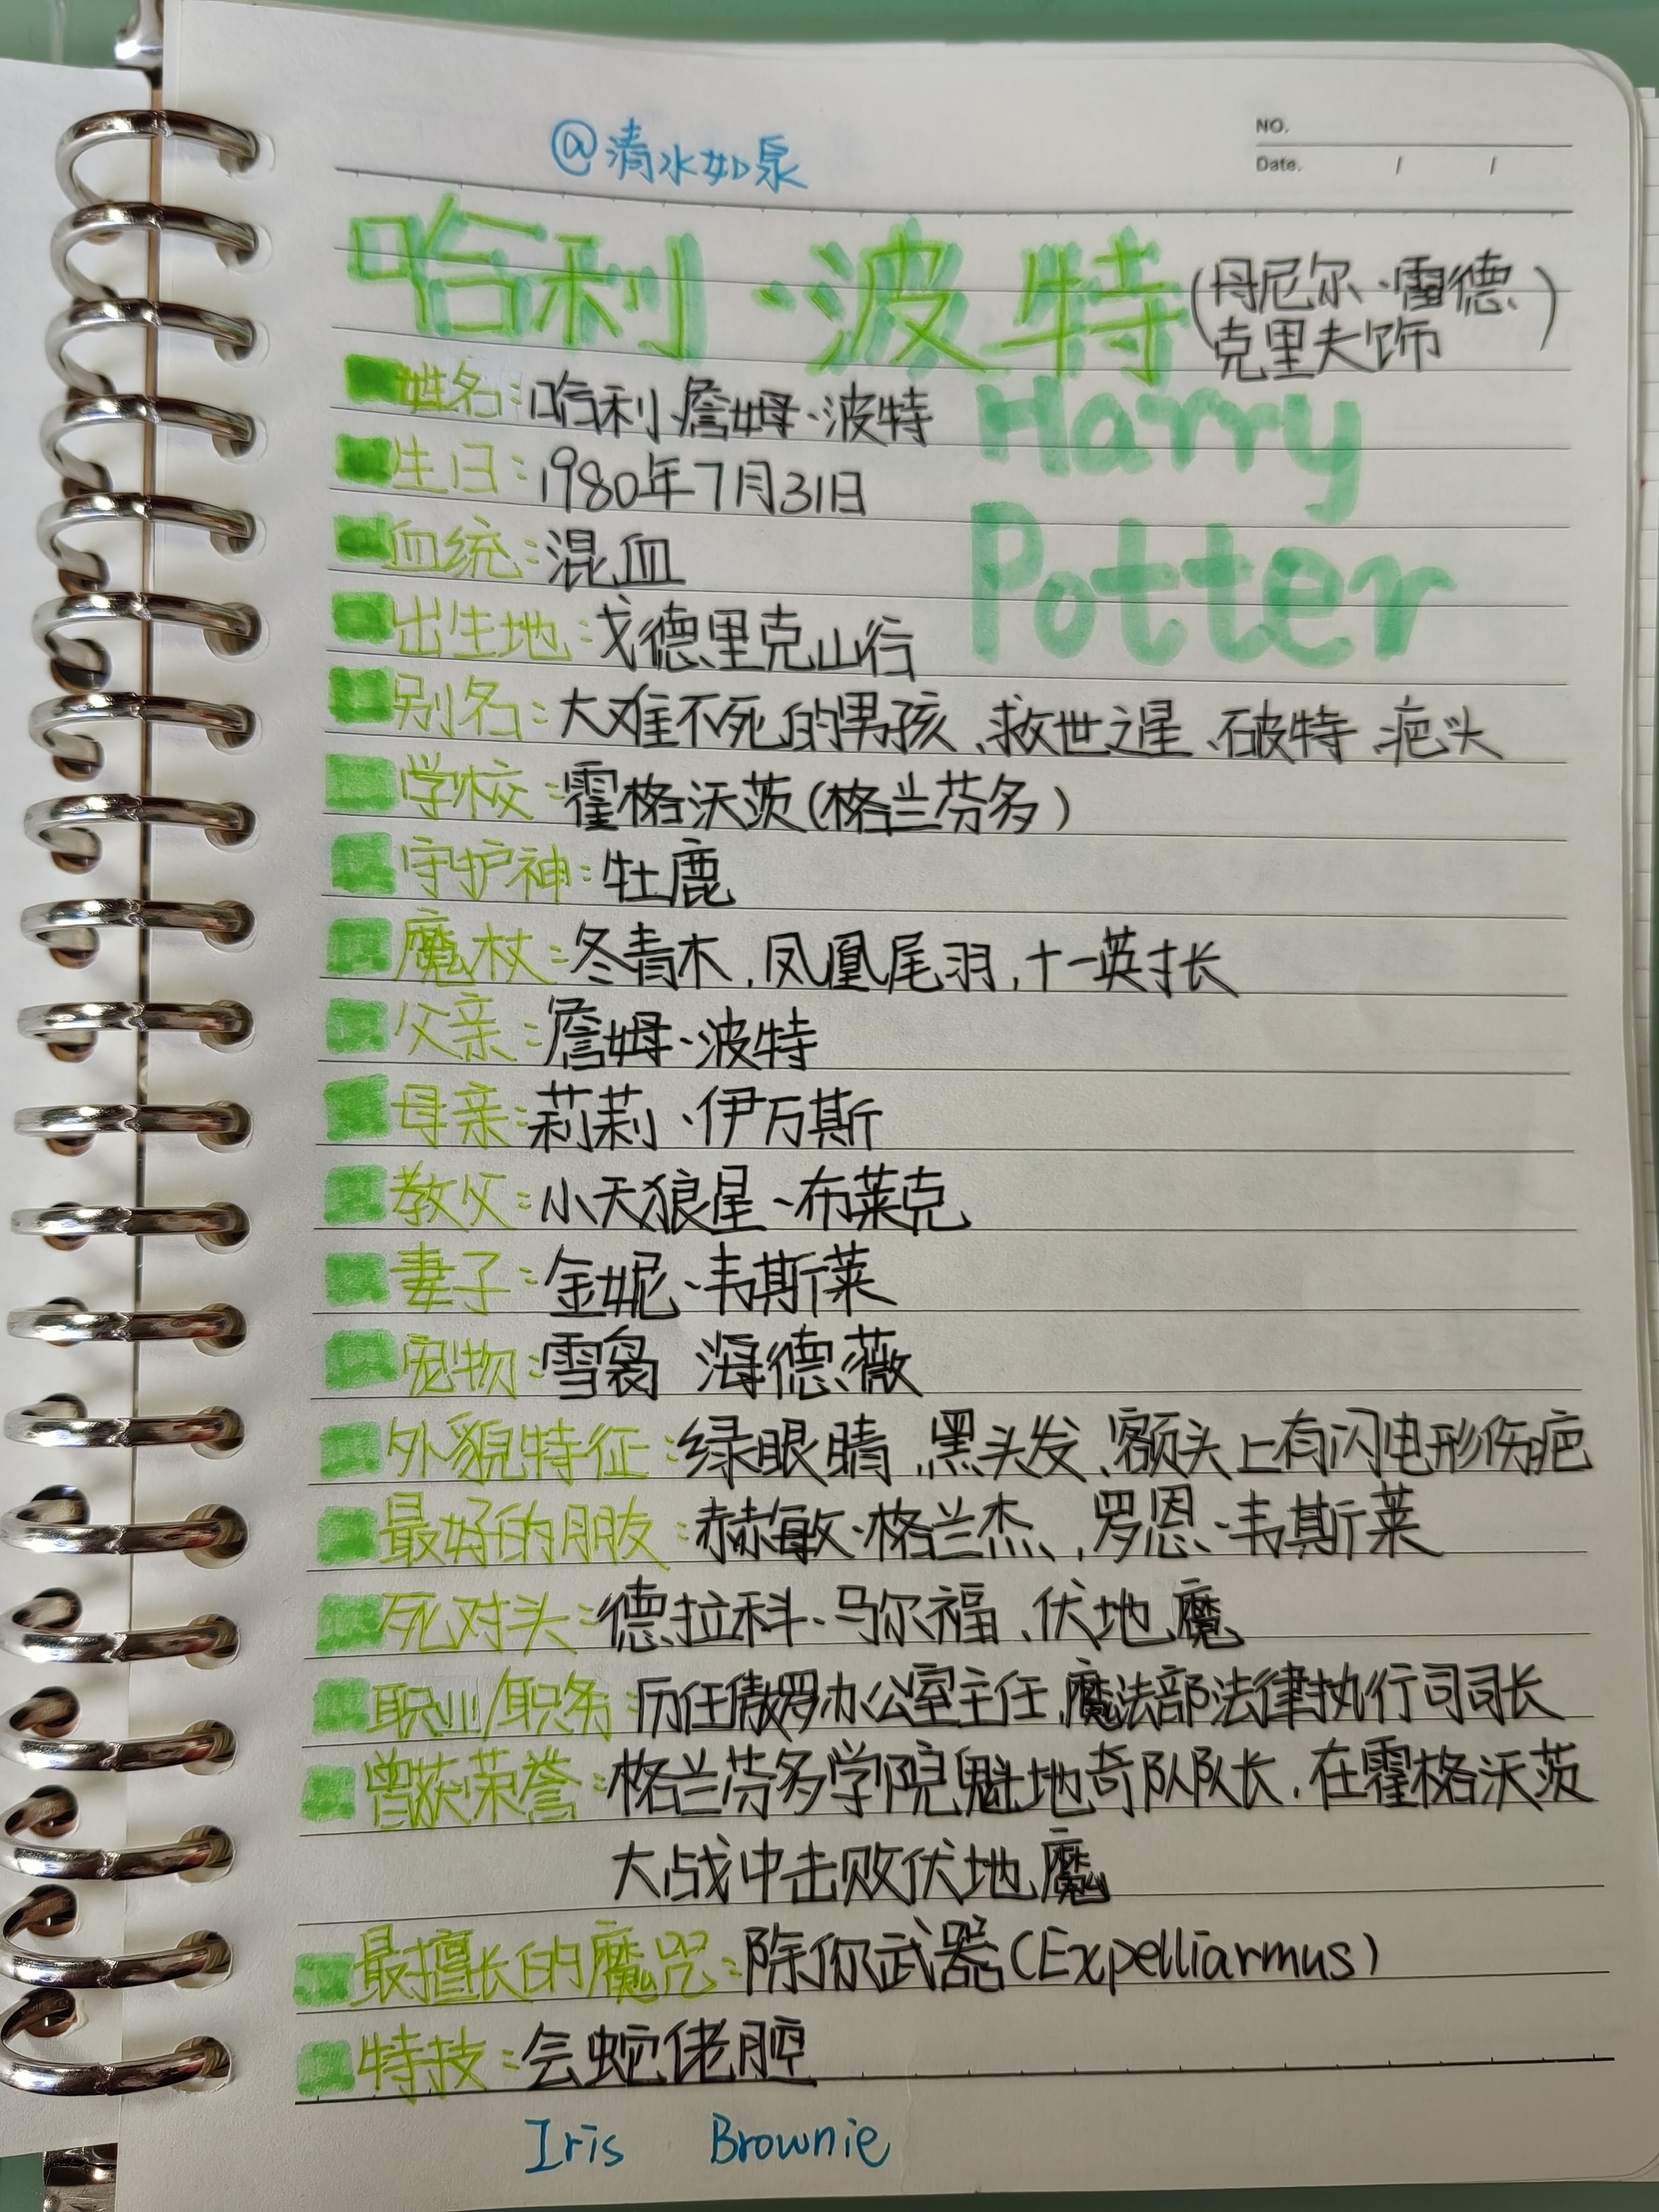 @清水如泉
NO.
Date. / /
哈利·波特(丹尼尔·雷德
克里夫饰)
Harry
Potter
姓名:哈利·詹姆·波特
生日:1980年7月31日
血统:混血
出生地:戈德里克山谷
别名:大难不死的男孩、救世之星、破特、疤头
学校:霍格沃茨(格兰芬多)
守护神:牡鹿
魔杖:冬青木,凤凰尾羽,十一英寸长
父亲:詹姆·波特
母亲:莉莉·伊万斯
教父:小天狼星·布莱克
妻子:金妮·韦斯莱
宠物:雪枭 海德薇
外貌特征:绿眼睛、黑头发、额头上有闪电形伤疤
最好的朋友:赫敏·格兰杰、罗恩·韦斯莱
死对头:德拉科·马尔福、伏地魔
职业/职务:历任傲罗办公室主任、魔法部法律执行司司长
曾获荣誉:格兰芬多学院魁地奇队队长,在霍格沃茨
大战中击败伏地魔
最擅长的魔咒:除你武器(Expelliarmus)
特技:会蛇佬腔
Iris Brownie